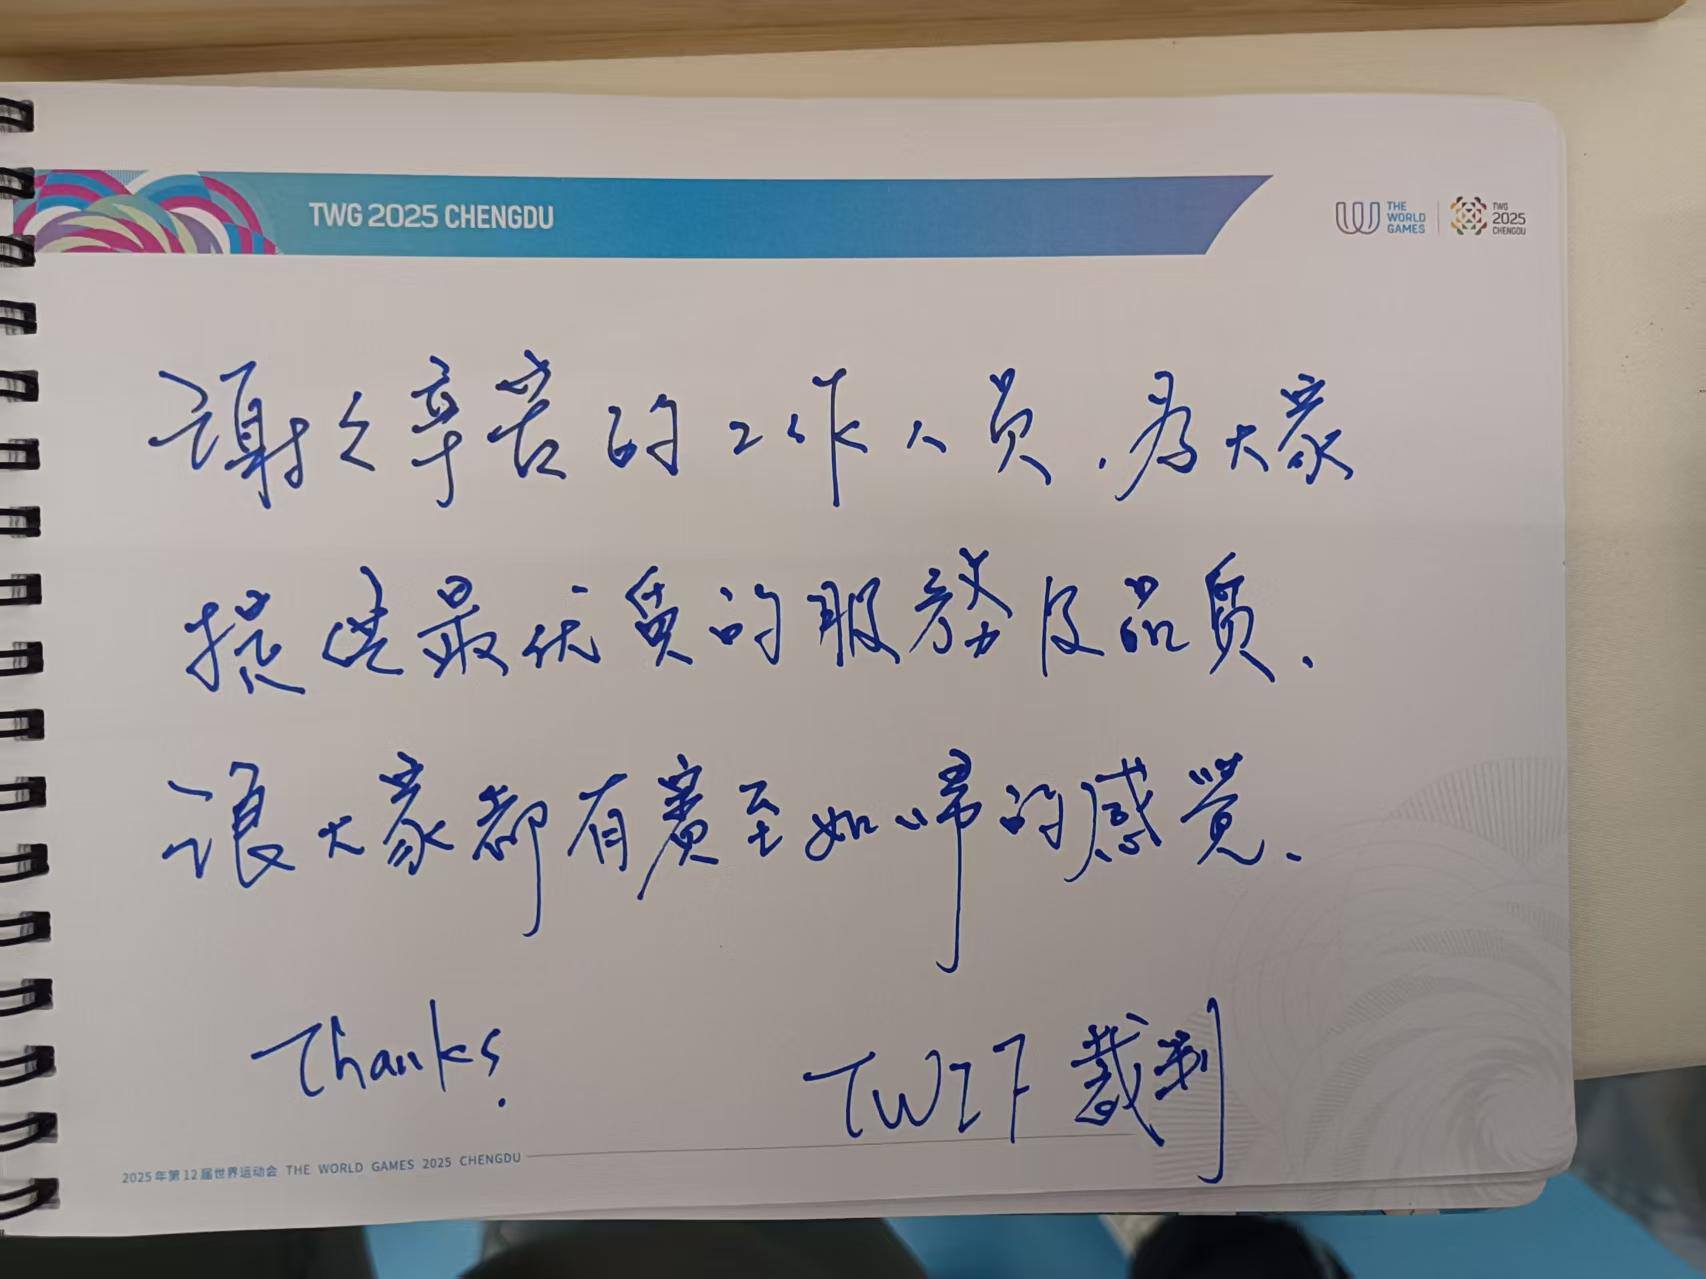 TWG 2025 CHENGDU
THE
WORLD
GAMES
TWG
2025
CHENGDU
謝谢辛苦的工作人员.為大家
提供最优質的服務及品質.
讓大家都有賓至如帰的感覚.
Thanks.
TWIF 裁判
2025年第12届世界运动会 THE WORLD GAMES 2025 CHENGDU